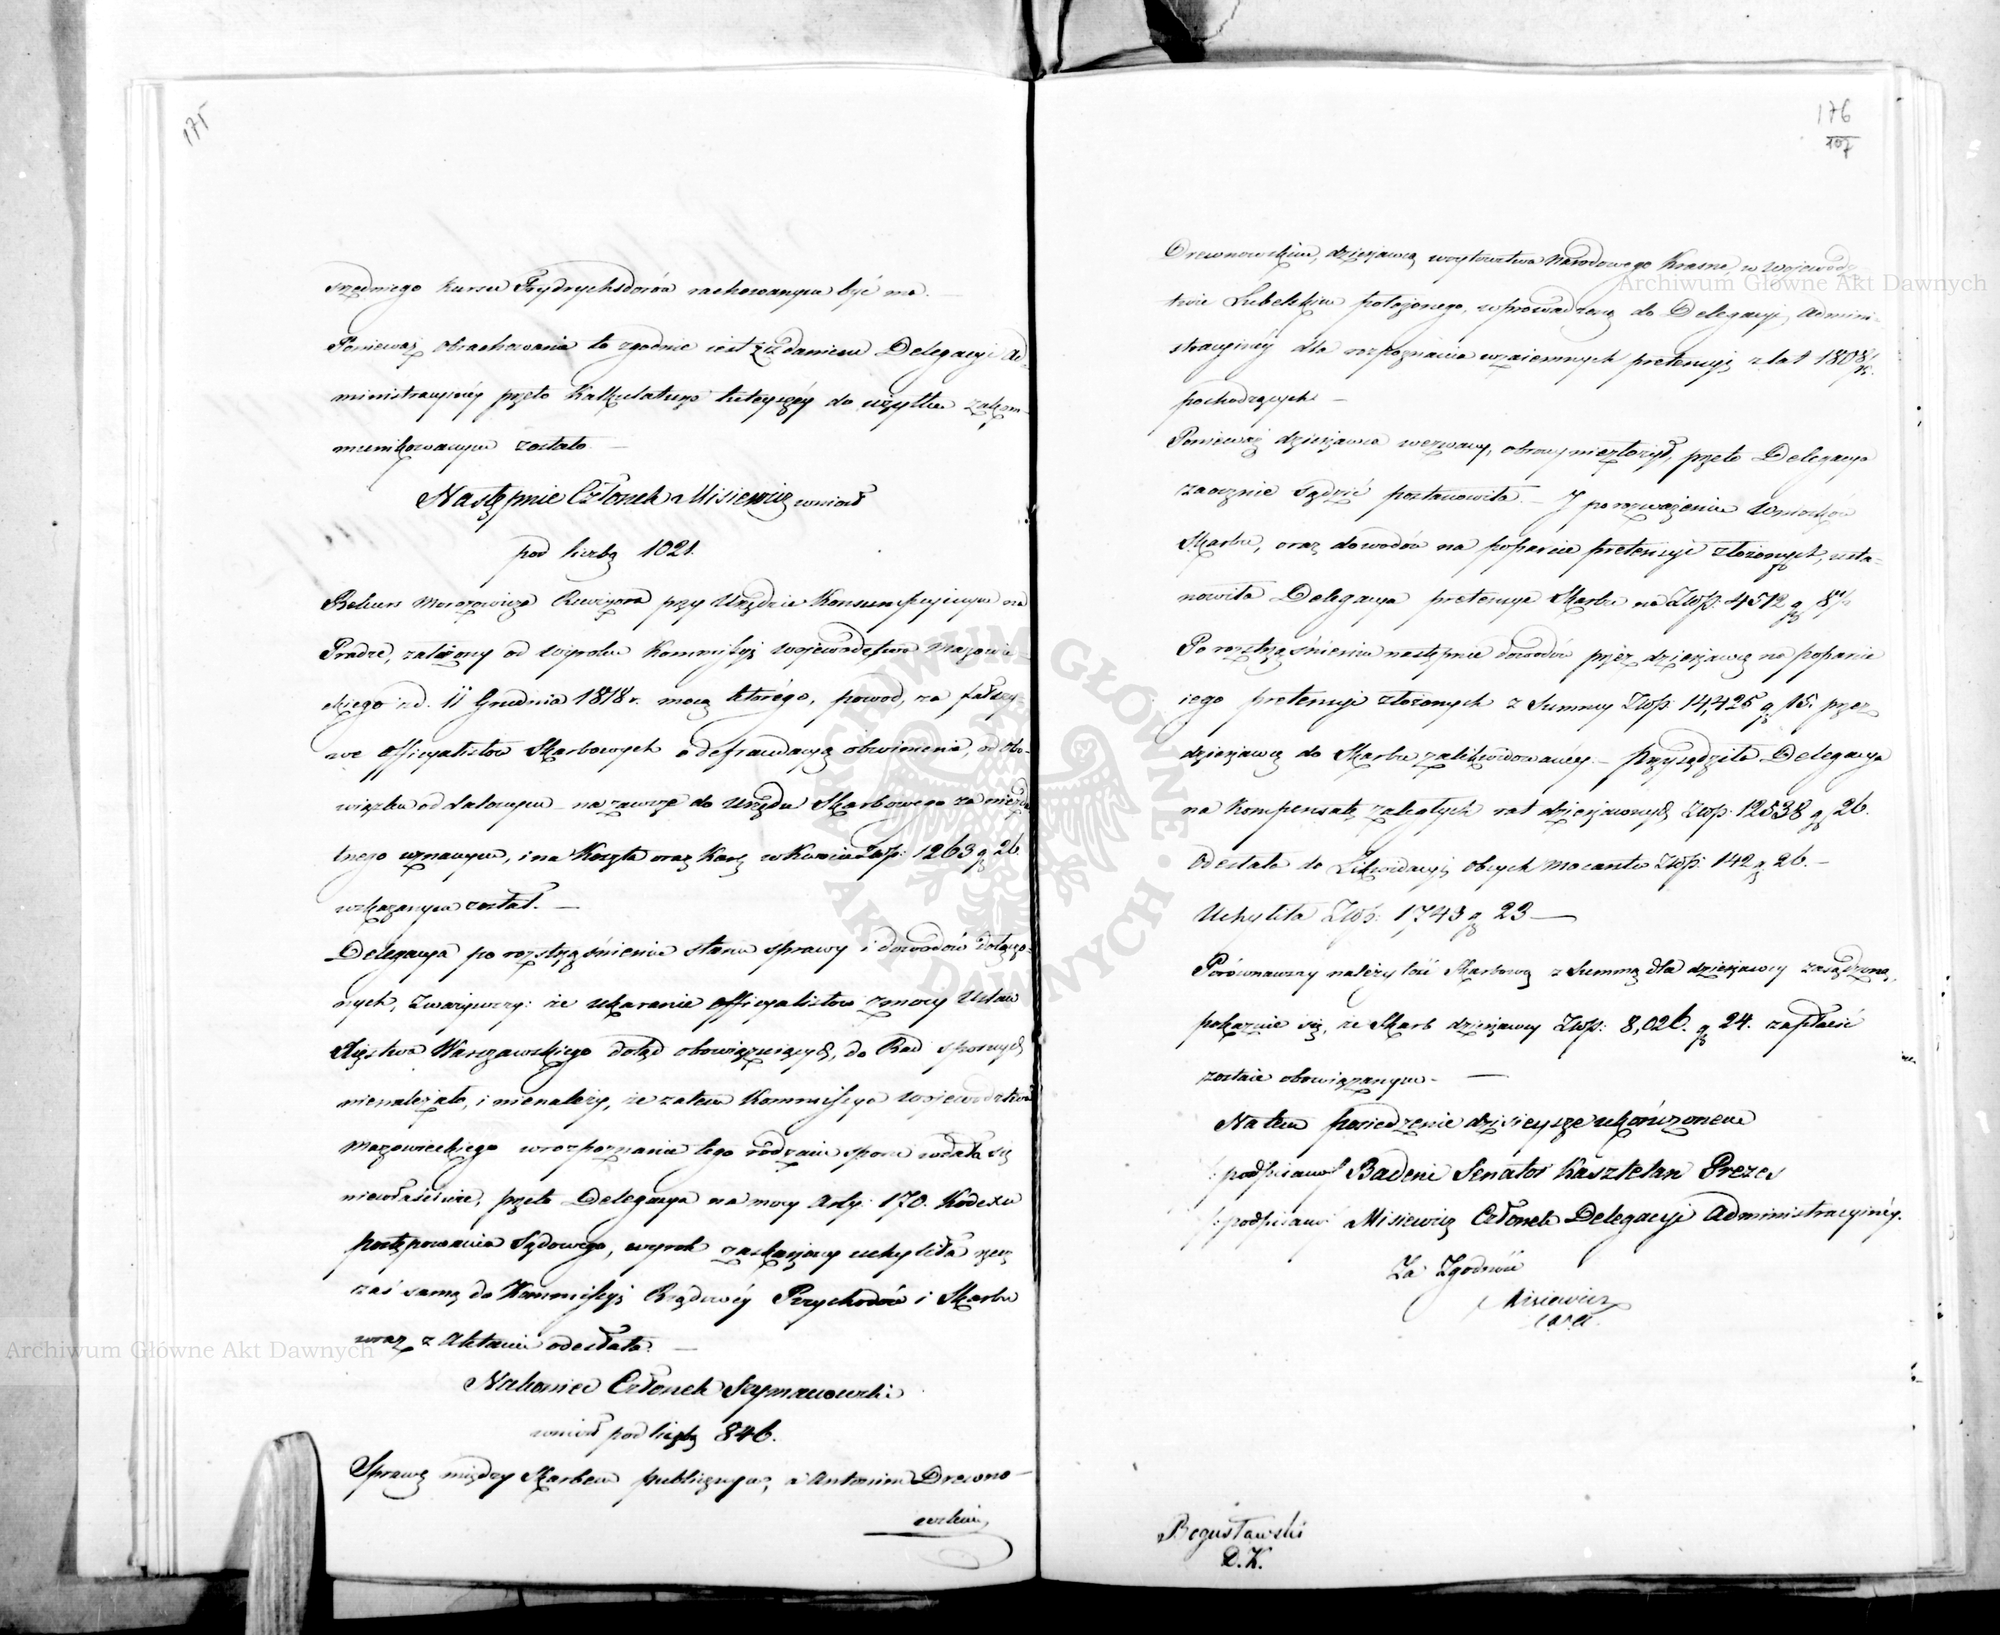 175
średniego kursu Frydrychsdorów rachowanym być ma. —
Ponieważ obrachowanie to zgodnie iest z żądaniem Delegacyi Ad-
ministracyinéy przeto Kalkulaturze tuteyszéy do użytku zakom-
munikowanym zostało —
Następnie Członek Misiewicz wniósł
pod liczbą 1021.
Rekurs Morozowicza Rewizora przy Urzędzie Konsumpcyinym na
Pradze, założony od Wyroku Kommissyi Woiewództwa Mazowie-
ckiego z d. 11 Grudnia 1818 r. mocą którego, powod, za fałszy-
we Officyalistów Skarbowych o defraudacyą obwinienie, od obo-
wiązku oddalonym na zawsze do Urzędu Skarbowego za niezda-
tnego uznanym, i na Koszta oraz Karę w Kwocie Złp: 1263 gr 26
wskazanym został. —
Delegacya po roztrząśnieniu stanu sprawy i dowodów dołączo-
nych, Zważywszy: że ukaranie Officyalistów z mocy Ustaw
Xięstwa Warszawskiego dotąd obowiązuiących, do Rad spornych
nienależało, i nienależy, że zatem Kommissya Woiewództwa
Mazowieckiego w rozpoznanie tego rodzaiu sporu wdała się
niewłaściwie, przeto Delegacya na mocy Arty: 170. Kodexu
postępowania Sądowego, wyrok zaskarżony uchyliła rzecz
zaś samą do Kommissyi Rządowéy Przychodów i Skarbu
wraz z Aktami odesłała. —
Nakoniec Członek Szymanowski
wniósł pod liczbą 846.
Sprawę między Skarbem publicznym, a Antonim Drewno-
wskim,
176
107
Drewnowskim, dzierżawcą woytowstwa Narodowego Krasne, w Woiewódz-
Archiwum Główne Akt Dawnych
twie Lubelskim położonego, wprowadzoną do Delegacyi Admini-
stracyinéy dla rozpoznania wzaiemnych pretensyi z lat 1808/15.
pochodzących —
Ponieważ dzierżawca wezwany, obrony niezłożył, przeto Delegacya
zaocznie sądzić postanowiła. — I po rozważeniu Wniosków
Skarbu, oraz dowodów na poparcie pretensyi złożonych, usta-
nowiła Delegacya pretensye Skarbu na Złp: 4512 gr
Po roztrząśnieniu następnie dowodów przez dzierżawcę na poparcie
iego pretensyi złożonych z Summy Złp: 14,425 gr 15. przez
dzierżawcę do Skarbu zalikwidowanéy — przysądziła Delegacya
na Kompensatę zaległych rat dzierżawnych Złp: 12538 gr 26.
Odesłała do Likwidacyi obcych Mocarstw Złp: 142 gr 26. —
Uchyliła Złp: 1743 gr 23 —
Porównawszy należytość Skarbową z Summą dla dzierżawcy zasądzoną,
pokazuie się, że Skarb dzierżawcy Złp: 8,026. gr 24. zapłacić
zostaie obowiązanym. —
Na tem posiedzenie dzisieysze ukończonem
/: podpisano/ Badeni Senator Kasztelan Prezes
/: podpisano/ Misiewicz Członek Delegacyi Administracyinéy.
Za Zgodność
Misiewicz
Bogusławski
D.K.
ARCHIWUM GŁÓWNE AKT DAWNYCH
Archiwum Główne Akt Dawnych